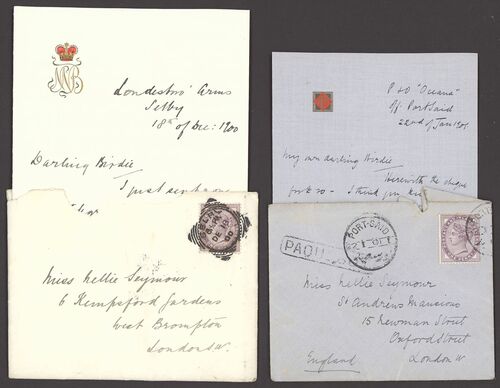 Londesbro' Arms
Selby
18th of Dec: 1900
Darling Birdie
I just
SELBY
DE 18
00
Miss Nellie Seymour
6 Kempsford Gardens
West Brompton
London S.W.
P & O "Oceana"
off Port Said
22nd of Jan 1901
My own darling Birdie
Herewith the cheque
for £20 - I think you
PORT-SAID
PAQUEBOT
Miss Nellie Seymour
St Andrews Mansions
15 Newman Street
Oxford Street
London W
England